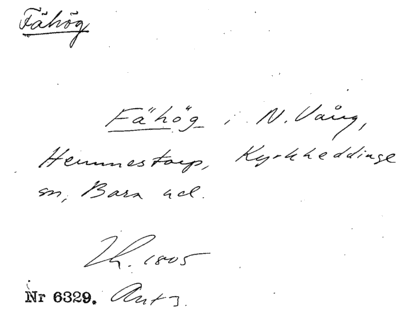 Fähög
Fähög i N. Vång,
Hemmestorp, Kyrkheddinge
sn, Bara hd.
Lh. 1805
Nr 6329. Ant 3.